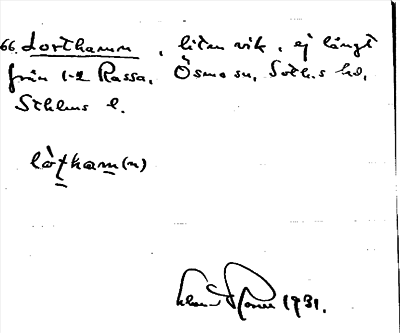 66. Lorthamn, liten vik, ej långt
från 1-2 Rassa, Ösmo sn, Soth.s hd,
Sthlms l.
1931.